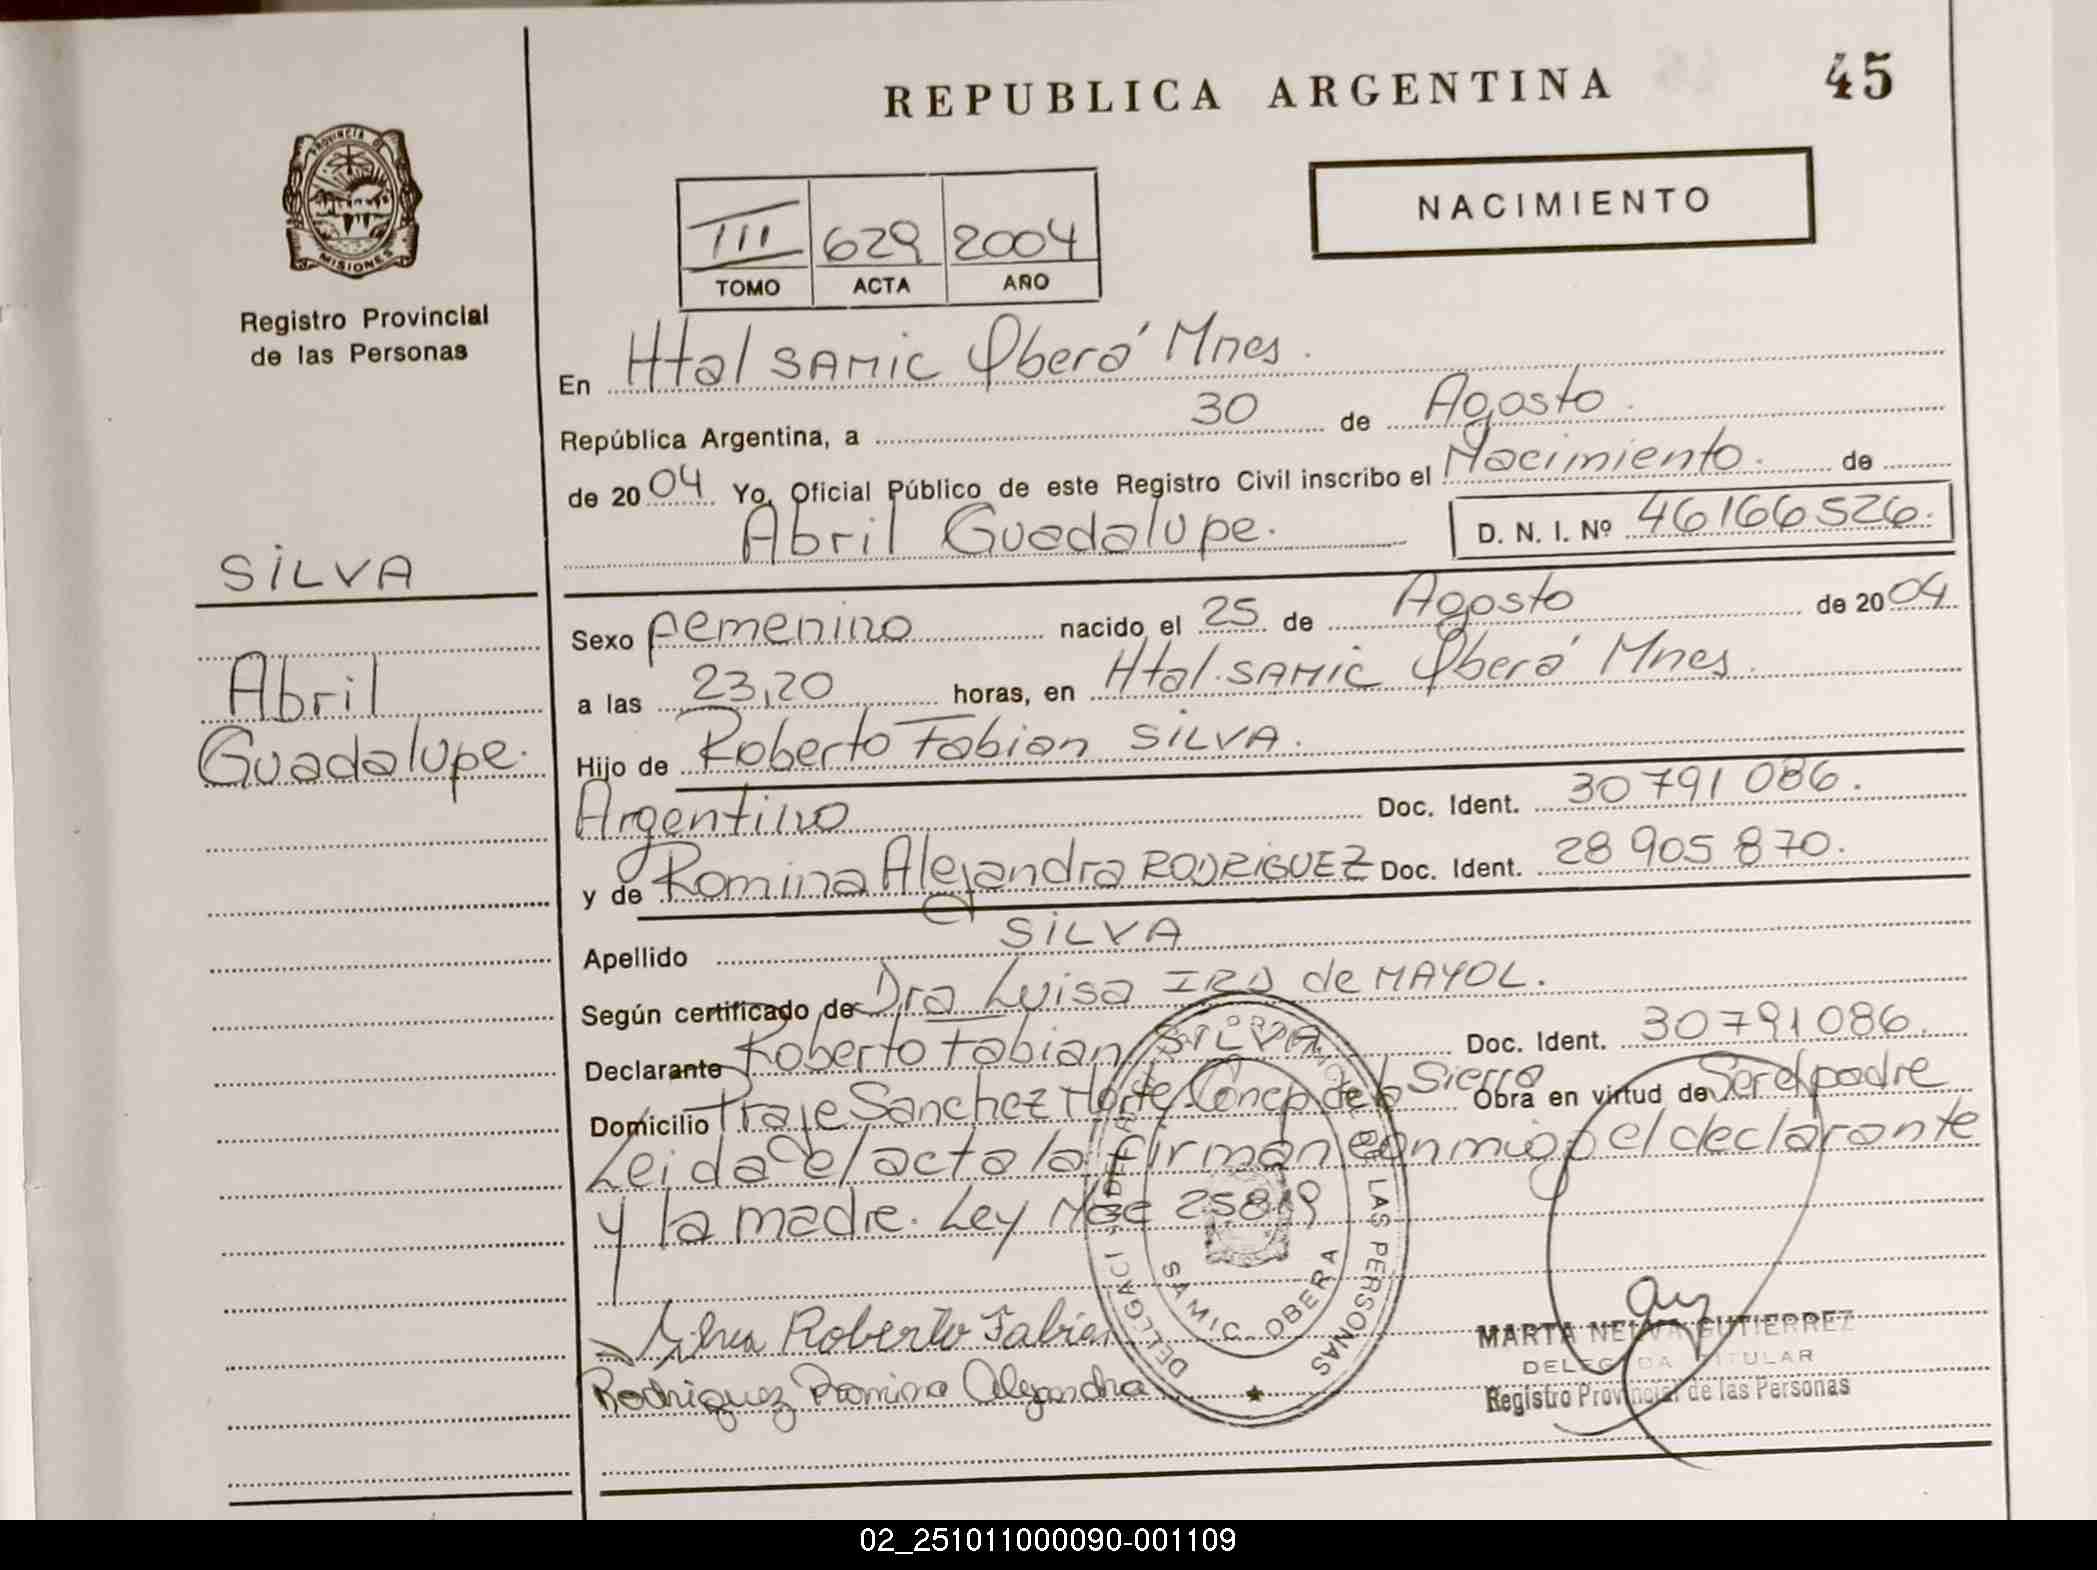 REPUBLICA ARGENTINA
45
PROVINCIA DE
MISIONES
Registro Provincial
de las Personas
NACIMIENTO
III 629 2004
TOMO ACTA AÑO
En Htal SAMIC Oberá Mnes.
República Argentina, a 30 de Agosto
de 2004 Yo, Oficial Público de este Registro Civil inscribo el Nacimiento de
Abril Guadalupe. D. N. I. Nº 46166526.
SILVA
Abril
Guadalupe.
Sexo femenino nacido el 25 de Agosto de 2004
a las 23,20 horas, en Htal. SAMIC Oberá Mnes.
Hijo de Roberto Fabian SILVA.
Argentino Doc. Ident. 30791086.
y de Romina Alejandra RODRIGUEZ Doc. Ident. 28905870.
Apellido SILVA
Según certificado de Dra Luisa de MAYOL.
Declarante Roberto Fabian SILVA Doc. Ident. 30791086.
Domicilio Pje Sanchez Norte Concep de la Sierra Obra en virtud de Ser el padre
Leida el acta la firman conmigo el declarante
y la madre. Ley 25819
Silva Roberto Fabian
Rodriguez Romina Alejandra
LAS PERSONAS
SAMIC OBERA
MARTA NELVA GUTIERREZ
DELEGADA TITULAR
Registro Provincial de las Personas
02_251011000090-001109